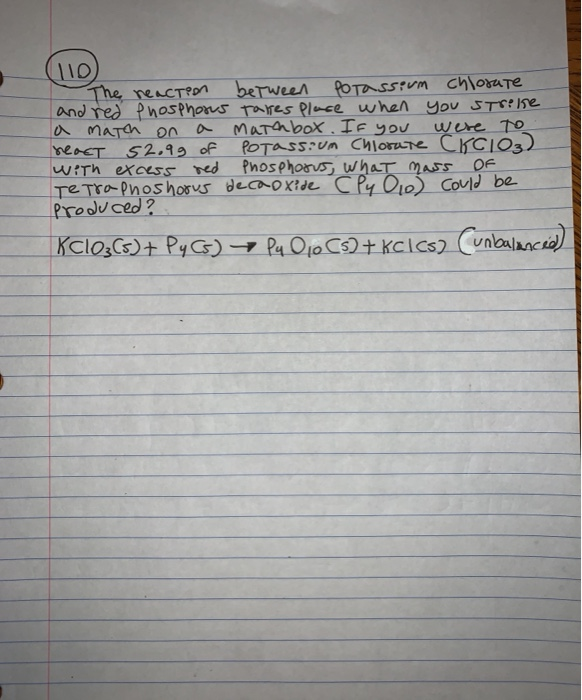 110
The reaction between potassium chlorate
and red phosphorus takes place when you strike
a match on a matchbox. If you were to
react 52.9g of potassium chlorate (KClO3)
with excess red phosphorus, what mass of
tetraphoshorus decaoxide (P4O10) could be
produced?
KClO3(s) + P4(s) → P4O10(s) + KCl(s) (unbalanced)